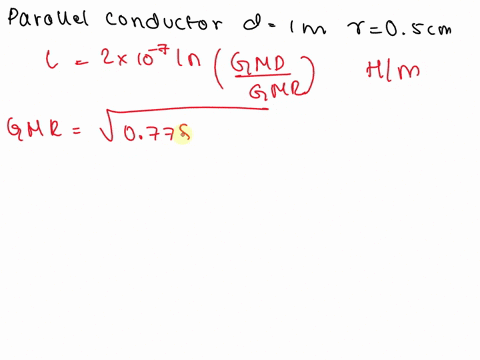 Parallel conductor d = 1m r = 0.5cm
L = 2 × 10⁻⁷ ln (GMD / GMR) H/m
GMR = √0.778